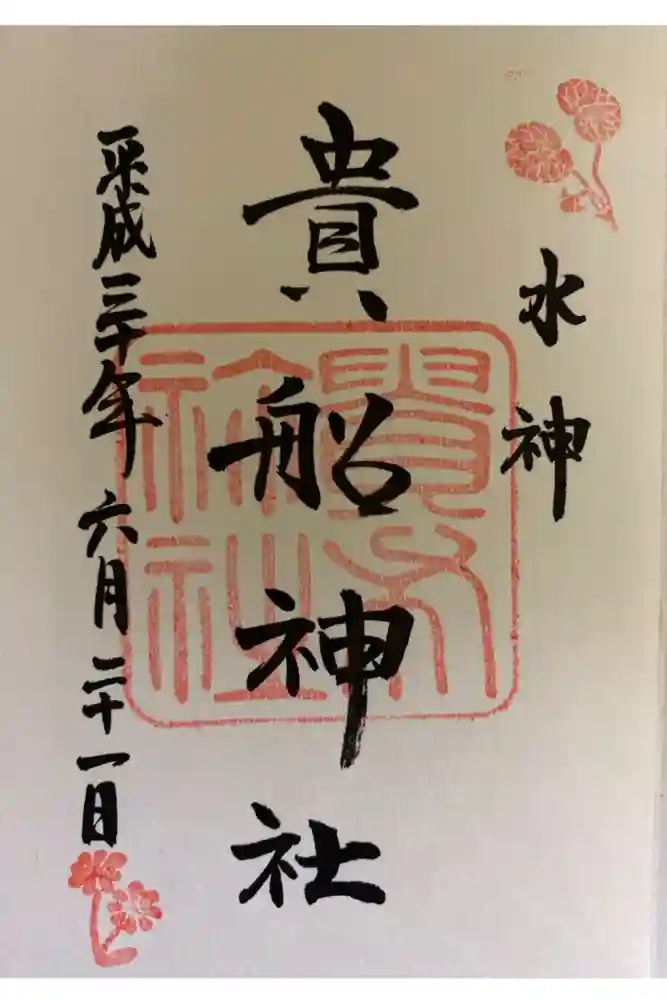 水神
貴船神社
平成三十年六月二十一日